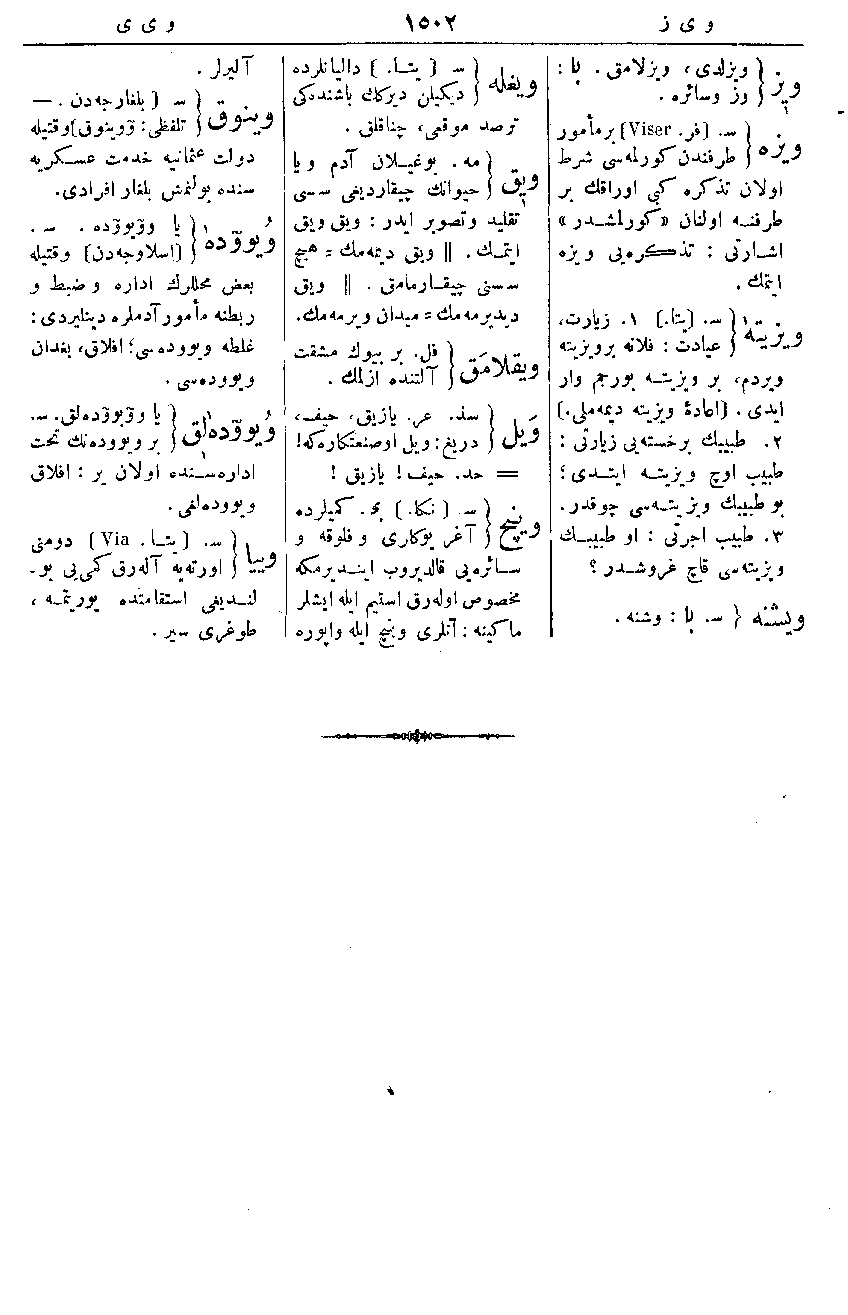 و ی ز
١٥٠٢
و ی ی
ویز { ویزلدی، ویزلامق. با :
وز وسائره.
ویزه { س. [فر. Viser] بر مأمور
طرفندن کورلمه‌سی شرط
اولان تذکره کبی اوراقك بر
طرفنه اولنان «کورلمشدر»
اشارتی : تذکره‌یی ویزه
ایتمك.
ویزیته { س. [یتا.] ١. زیارت،
عیادت : فلانه بر ویزیته
ویردم، بر ویزیته بورجم وار
ایدی. [اعادۀ ویزیته دیمه‌ملی.]
٢. طبیبك بر خسته‌یی زیارتی :
طبیب اوچ ویزیته ایتدی؛
بو طبیبك ویزیته‌سی چوقدر.
٣. طبیب اجرتی : او طبیبك
ویزیته‌سی قاچ غروشدر؟
ویشنه { س. با : وشنه.
ویغله { س [یتا.] دالیانلرده
دیکیلن دیرکك باشنده‌کی
ترصد موقعی، چناقلق.
ویق { مه. بوغیلان آدم ویا
حیوانك چیقاردیغی سسی
تقلید وتصویر ایدر : ویق ویق
ایتمك. ‖ ویق دیمه‌مك = هیچ
سسنی چیقارمامق. ‖ ویق
دیدیرمه‌مك = میدان ویرمه‌مك.
ویقلامق { فل. بر بیوك مشقت
آلتنده ازلمك.
ویل { سذ. عر. یازیق، حیف،
دریغ : ویل او صنعتکاره‌که!
= حد. حیف! یازیق!
وینچ { س. [نکا.] بح. کمیلرده
آغر یوکاری و فلوقه و
سائره‌یی قالدیروب ایندیرمکه
مخصوص اوله‌رق استیم ایله ایشلر
ماکینه : آنلری وینچ ایله واپوره
آلیرلر.
وینوق { س [بلغارجه‌دن. —
تلفظی : ووینوق] وقتیله
دولت عثمانیه خدمت عسکریه
سنده بولنمش بلغار افرادی.
ویووده { یا وویووده. س.
[اسلاوجه‌دن] وقتیله
بعض محللرك اداره و ضبط و
ربطنه مأمور آدملره دینلیردی :
غلطه ویووده‌سی؛ افلاق، بغدان
ویووده‌سی.
ویووده‌لق { یا وویووده‌لق. س.
بر ویووده‌نك تحت
اداره‌سنده اولان یر : افلاق
ویووده‌لغی.
وییا { س. [یتا. Via] دومنی
اورته‌یه آله‌رق کمی‌یی بو-
لندیغی استقامتده یوریتمه،
طوغری سیر.